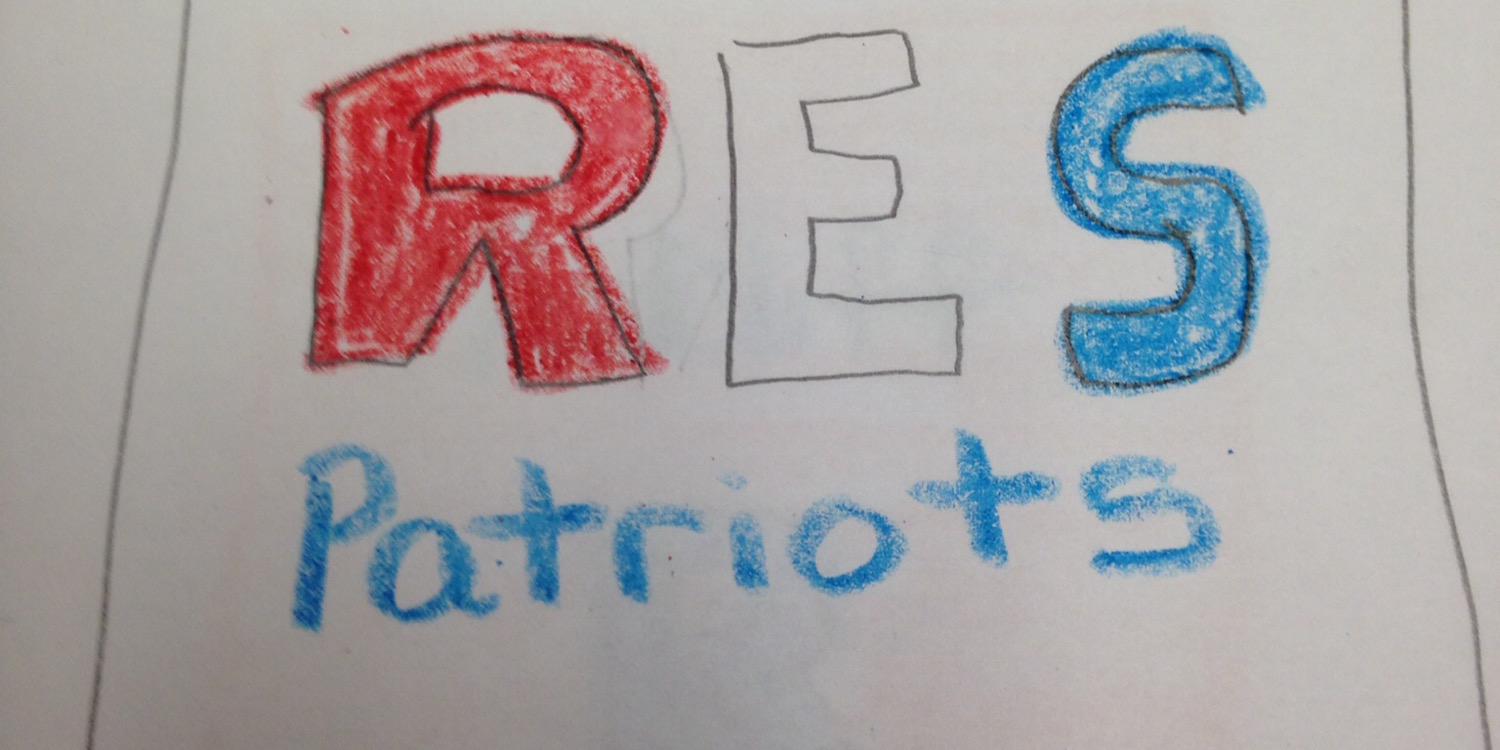 RES
Patriots